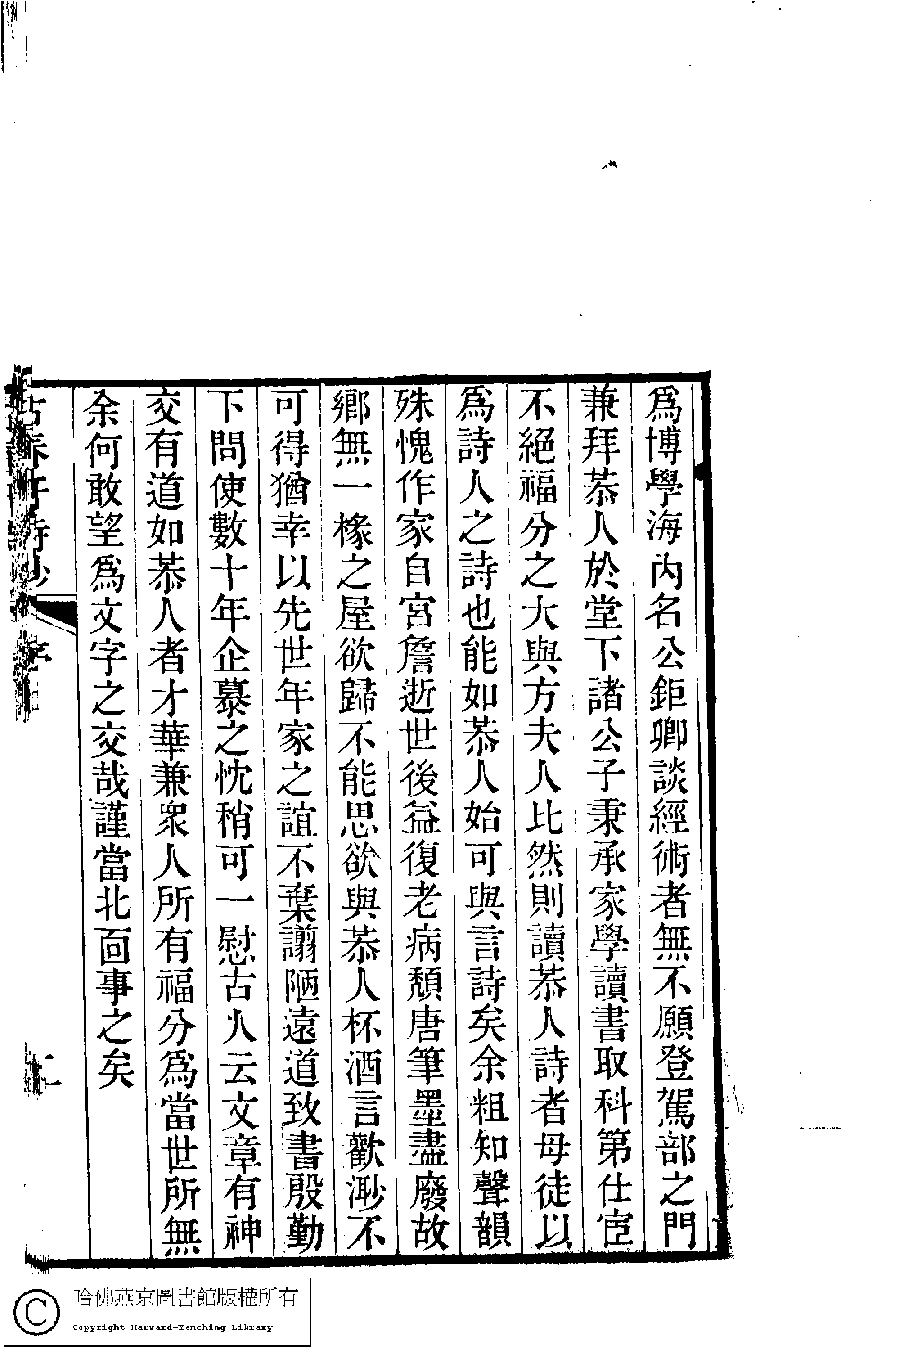 爲博學海內名公鉅卿談經術者無不願登駕部之門
兼拜恭人於堂下諸公子秉承家學讀書取科第仕宦
不絕福分之大與方夫人比然則讀恭人詩者毋徒以
爲詩人之詩也能如恭人始可與言詩矣余粗知聲韻
殊愧作家自宮詹逝世後益復老病頹唐筆墨盡廢故
鄉無一椽之屋欲歸不能思欲與恭人杯酒言歡渺不
可得猶幸以先世年家之誼不棄謭陋遠道致書殷勤
下問使數十年企慕之忱稍可一慰古人云文章有神
交有道如恭人者才華兼衆人所有福分爲當世所無
余何敢望爲文字之交哉謹當北面事之矣
古春軒詩抄
序
哈佛燕京圖書館版權所有
Copyright Harvard-Yenching Library